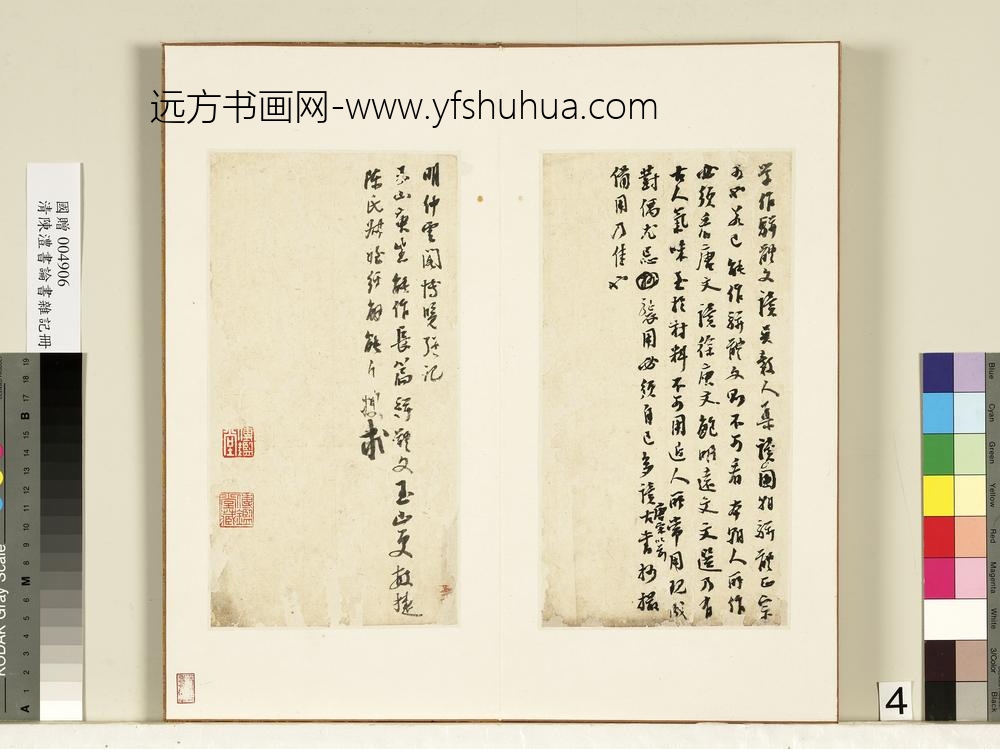 远方书画网-www.yfshuhua.com
學作駢體文讀吳穀人集讀國朝駢體正宗
可也若已能作駢體文則不可看本朝人所作
必須看唐文讀徐庾文鮑明遠文文選乃有
古人氣味至於材料不可用近人所常用現成
對偶尤忌 用必須自己多讀唐宋以前古書抄撮
備用乃佳也
明仲雲閣博覽強記
玉山東坐能作長篇駢體文玉山更敏捷
陳氏 姪
國贈 004906
清陳澧書論書雜記冊
4
KODAK Gray Scale
A 1 2 3 4 5 6 M 8 9 10 11 12 13 14 15 B 17 18 19
Blue
Cyan
Green
Yellow
Red
Magenta
White
3/Color
Black